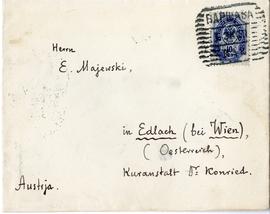 ВАРШАВА
Herrn
E. Majewski,
in Edlach (bei Wien),
(Oesterreich),
Kuranstalt Dr Konried.
Austrja.